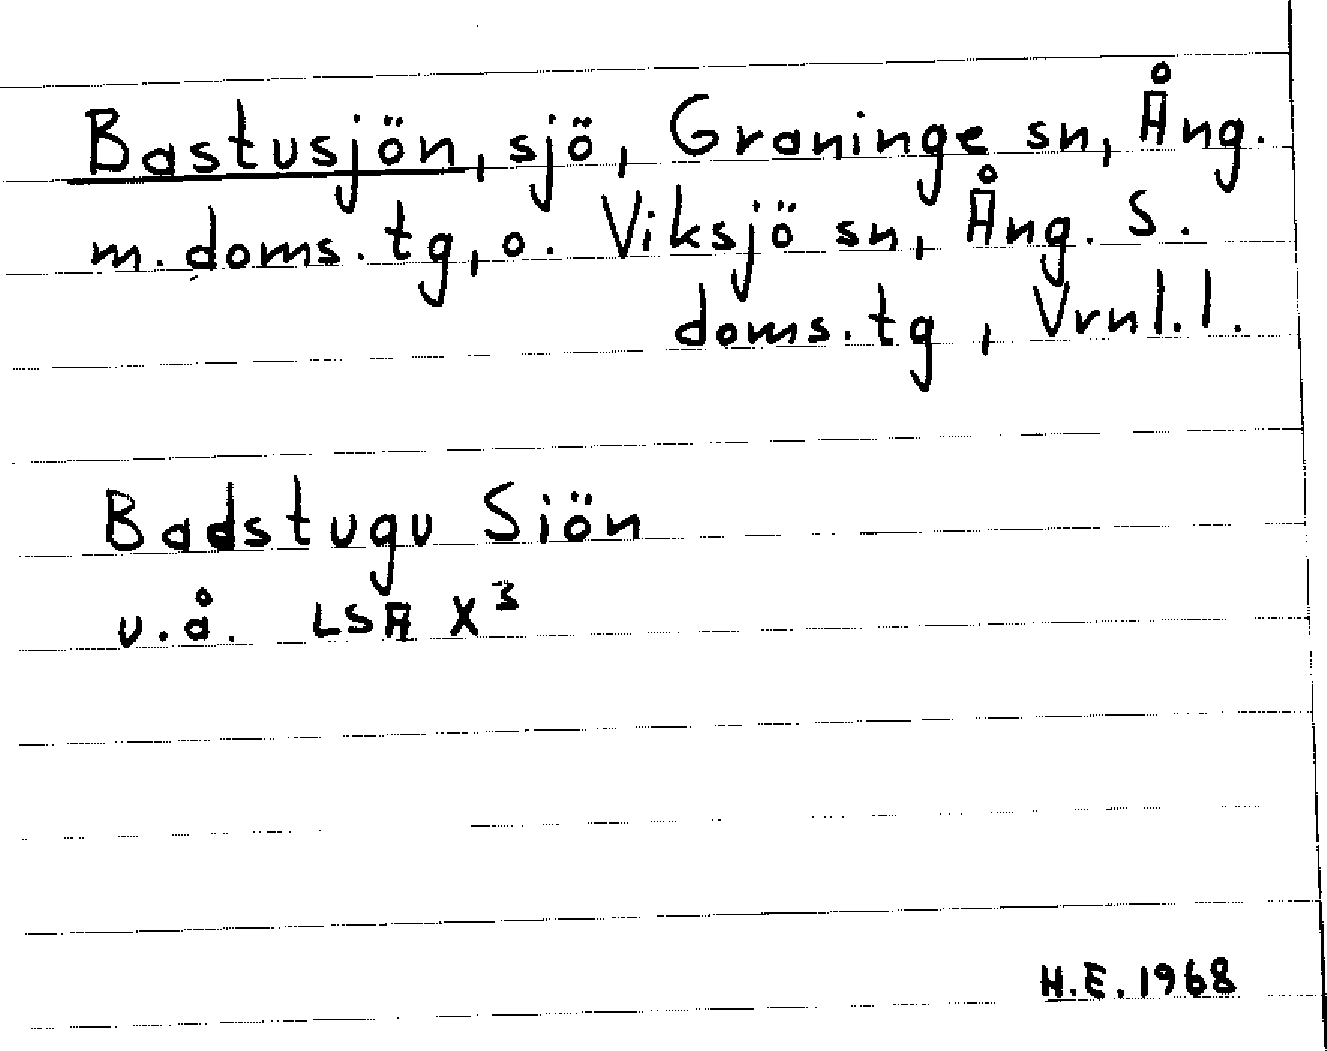 Bastusjön, sjö, Graninge sn, Ång.
m. doms. tg, o. Viksjö sn, Ång. S.
doms. tg, Vrnl. l.
Badstugu Siön
u.å. LSA X³
H.E. 1968